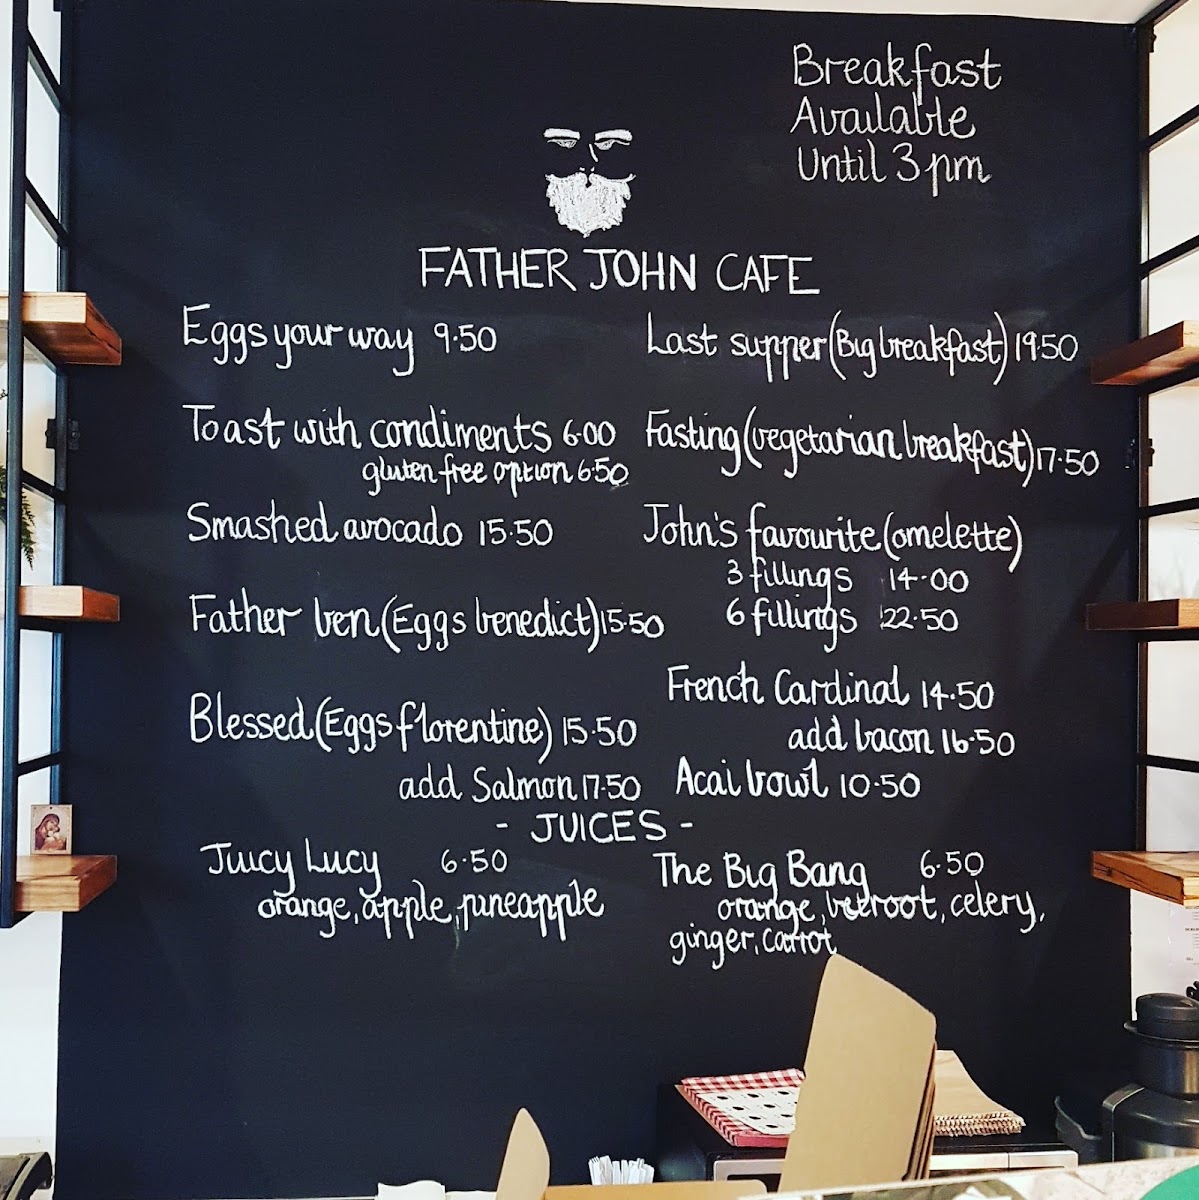 Breakfast
Available
Until 3pm
FATHER JOHN CAFE
Eggs your way 9.50
Toast with condiments 6.00
gluten free option 6.50
Smashed avocado 15.50
Father ben (Eggs benedict) 15.50
Blessed (Eggs florentine) 15.50
add Salmon 17.50
Last supper (Big breakfast) 19.50
Fasting (vegetarian breakfast) 17.50
John's favourite (omelette)
3 fillings 14.00
6 fillings 22.50
French Cardinal 14.50
add bacon 16.50
Acai bowl 10.50
- JUICES -
Juicy Lucy 6.50
orange, apple, pineapple
The Big Bang 6.50
orange, betroot, celery,
ginger, carrot